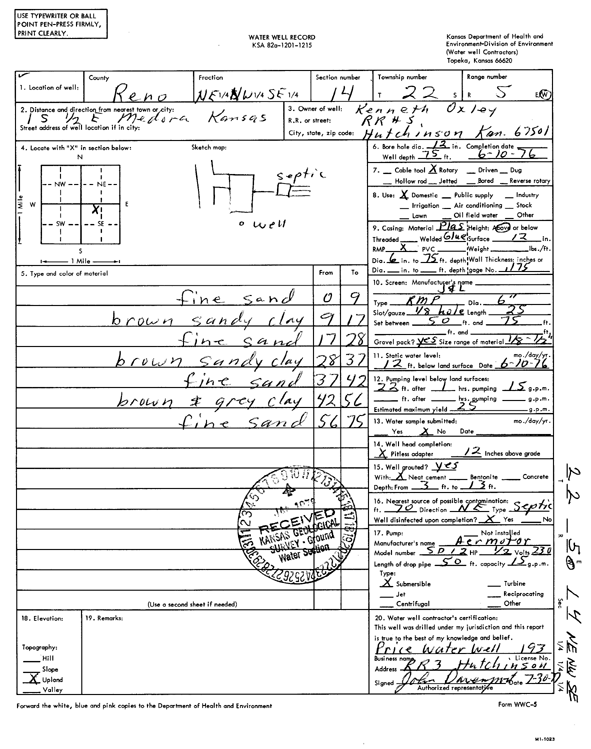 USE TYPEWRITER OR BALL
POINT PEN-PRESS FIRMLY,
PRINT CLEARLY.
WATER WELL RECORD
KSA 82a-1201-1215
Kansas Department of Health and
Environment-Division of Environment
(Water well Contractors)
Topeka, Kansas 66620
1. Location of well:
County
Reno
Fraction
NE 1/4 NW 1/4 SE 1/4
Section number
14
Township number
T 22 S
Range number
R 5 E/W
2. Distance and direction from nearest town or city:
1 S 1/2 E Medora Kansas
Street address of well location if in city:
3. Owner of well: Kenneth Oxley
R.R. or street: RR#5
City, state, zip code: Hutchinson Kan. 67501
4. Locate with "X" in section below:
Sketch map:
N
NW NE
W E
X
SW SE
S
1 Mile
1 Mile
septic
o well
6. Bore hole dia. 12 in. Completion date
Well depth 75 ft. 6-10-76
7. Cable tool X Rotary Driven Dug
Hollow rod Jetted Bored Reverse rotary
8. Use: X Domestic Public supply Industry
Irrigation Air conditioning Stock
Lawn Oil field water Other
9. Casing: Material Plas Height: Above or below
Threaded Welded Glue Surface 12 in.
RMP X PVC Weight: lbs./ft.
Dia. 6 in. to 75 ft. depth Wall Thickness: inches or
Dia. in. to ft. depth gage No. .175
5. Type and color of material
From To
fine sand 0 9
brown sandy clay 9 17
fine sand 17 28
brown sandy clay 28 37
fine sand 37 42
brown & grey clay 42 56
fine sand 56 75
10. Screen: Manufacturer's name
J&L
Type RMP Dia. 6"
Slot/gauze 1/8 hole Length 25
Set between 50 ft. and 75 ft.
ft. and ft.
Gravel pack? yes Size range of material 1/8-1/2"
11. Static water level: mo./day/yr.
12 ft. below land surface Date 6-10-76
12. Pumping level below land surfaces:
22 ft. after 1 hrs. pumping 15 g.p.m.
ft. after hrs. pumping g.p.m.
Estimated maximum yield 25 g.p.m.
13. Water sample submitted: mo./day/yr.
Yes X No Date
14. Well head completion:
X Pitless adapter 12 Inches above grade
15. Well grouted? yes
With: X Neat cement Bentonite Concrete
Depth: From 3 ft. to 13 ft.
16. Nearest source of possible contamination:
ft. 70 Direction NE Type Septic
Well disinfected upon completion? X Yes No
17. Pump: Not installed
Manufacturer's name Aermotor
Model number SD12 HP 1/2 Volts 230
Length of drop pipe 50 ft. capacity 15 g.p.m.
Type:
X Submersible Turbine
Jet Reciprocating
Centrifugal Other
RECEIVED
KANSAS GEOLOGICAL
SURVEY - Ground
Water Section
(Use a second sheet if needed)
18. Elevation:
19. Remarks:
Topography:
Hill
Slope
X Upland
Valley
20. Water well contractor's certification:
This well was drilled under my jurisdiction and this report
is true to the best of my knowledge and belief.
Price Water Well 193
Business name License No.
Address RR3 Hutchinson
Signed John Davenport Date 7-30-
Authorized representative
Forward the white, blue and pink copies to the Department of Health and Environment
Form WWC-5
T R E W Sec 1/4 1/4 1/4
22 - 5 14 NE NW SE